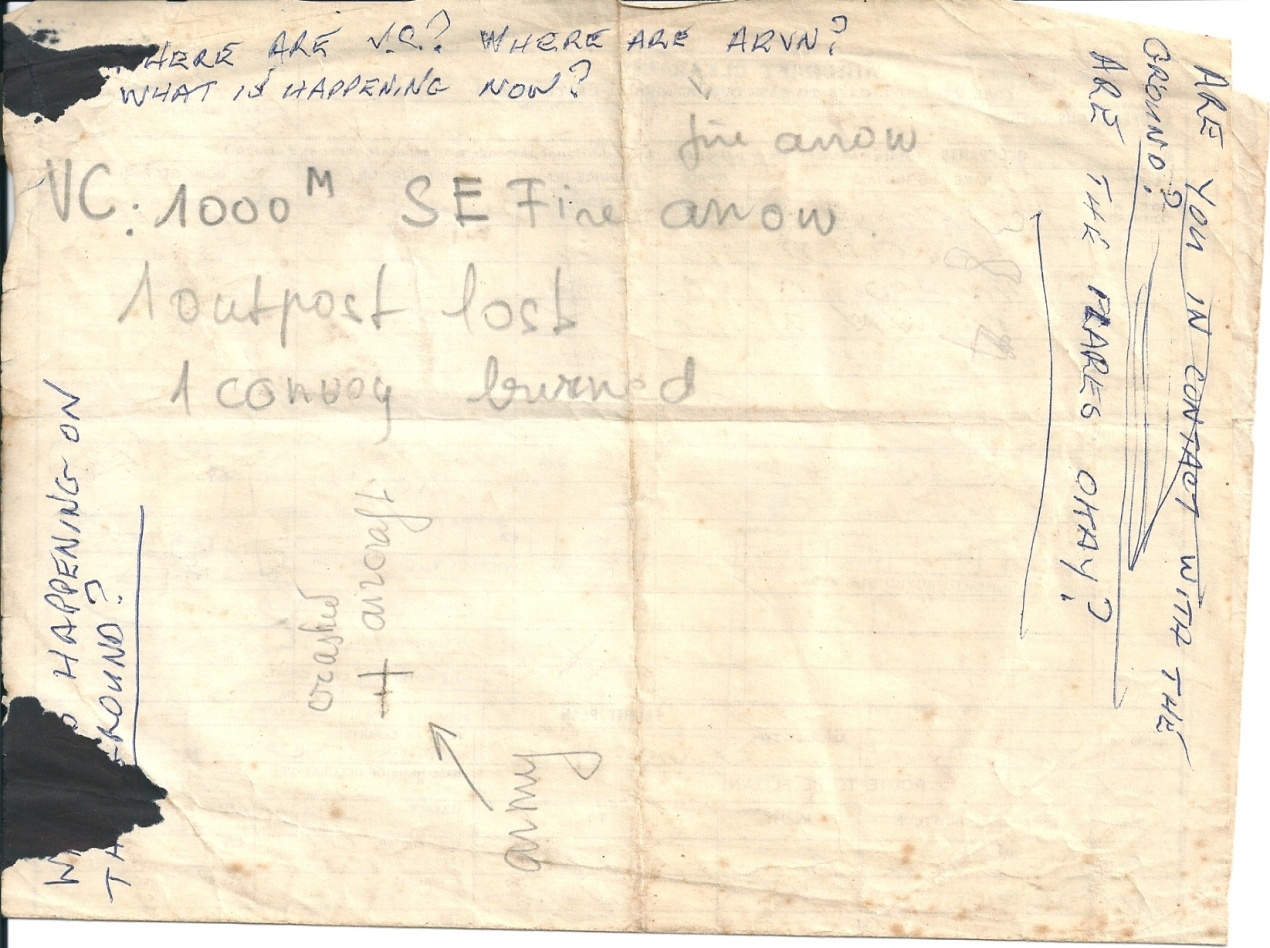 HERE ARE V.C.? WHERE ARE ARVN?
WHAT IS HAPPENING NOW?
fire arrow
VC: 1000 M SE Fire arrow
1 outpost lost
1 convoy burned
crashed
aircraft
army
HAPPENING ON
ROUND?
ARE YOU IN CONTACT WITH THE
GROUND?
ARE THE FLARES OKAY?